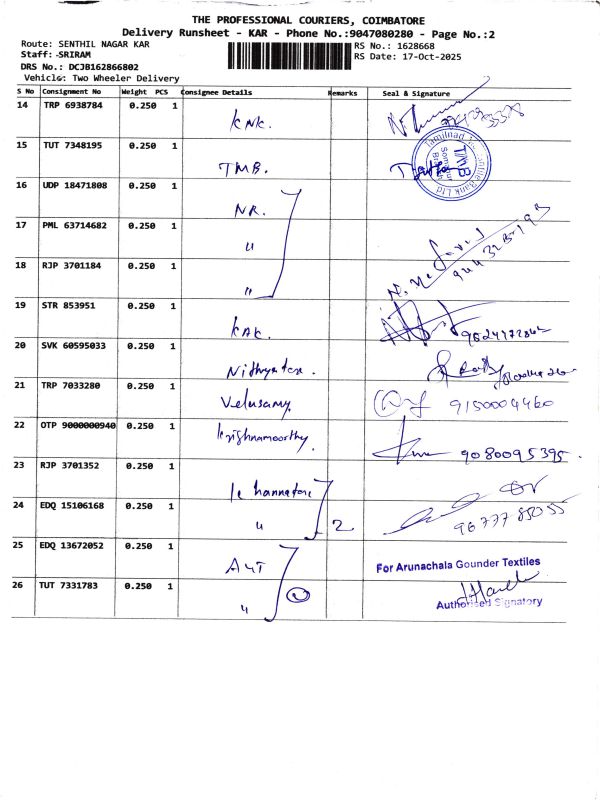 THE PROFESSIONAL COURIERS, COIMBATORE
Delivery Runsheet - KAR - Phone No.:9047080280 - Page No.:2
Route: SENTHIL NAGAR KAR
RS No.: 1628668
Staff: SRIRAM
RS Date: 17-Oct-2025
DRS No.: DCJB162866802
Vehicle: Two Wheeler Delivery
S No Consignment No Weight PCS Consignee Details Remarks Seal & Signature
14 TRP 6938784 0.250 1 KNK.
15 TUT 7348195 0.250 1 TMB.
TMB
16 UDP 18471808 0.250 1 NR.
17 PML 63714682 0.250 1 "
18 RJP 3701184 0.250 1 "
19 STR 853951 0.250 1 KAK.
20 SVK 60595033 0.250 1
21 TRP 7033280 0.250 1 Velusamy 9150004460
22 OTP 9000000940 0.250 1 Krishnamoorthy. 9080095395.
23 RJP 3701352 0.250 1
24 EDQ 15106168 0.250 1 " 2
25 EDQ 13672052 0.250 1
For Arunachala Gounder Textiles
26 TUT 7331783 0.250 1 "
Authorised Signatory